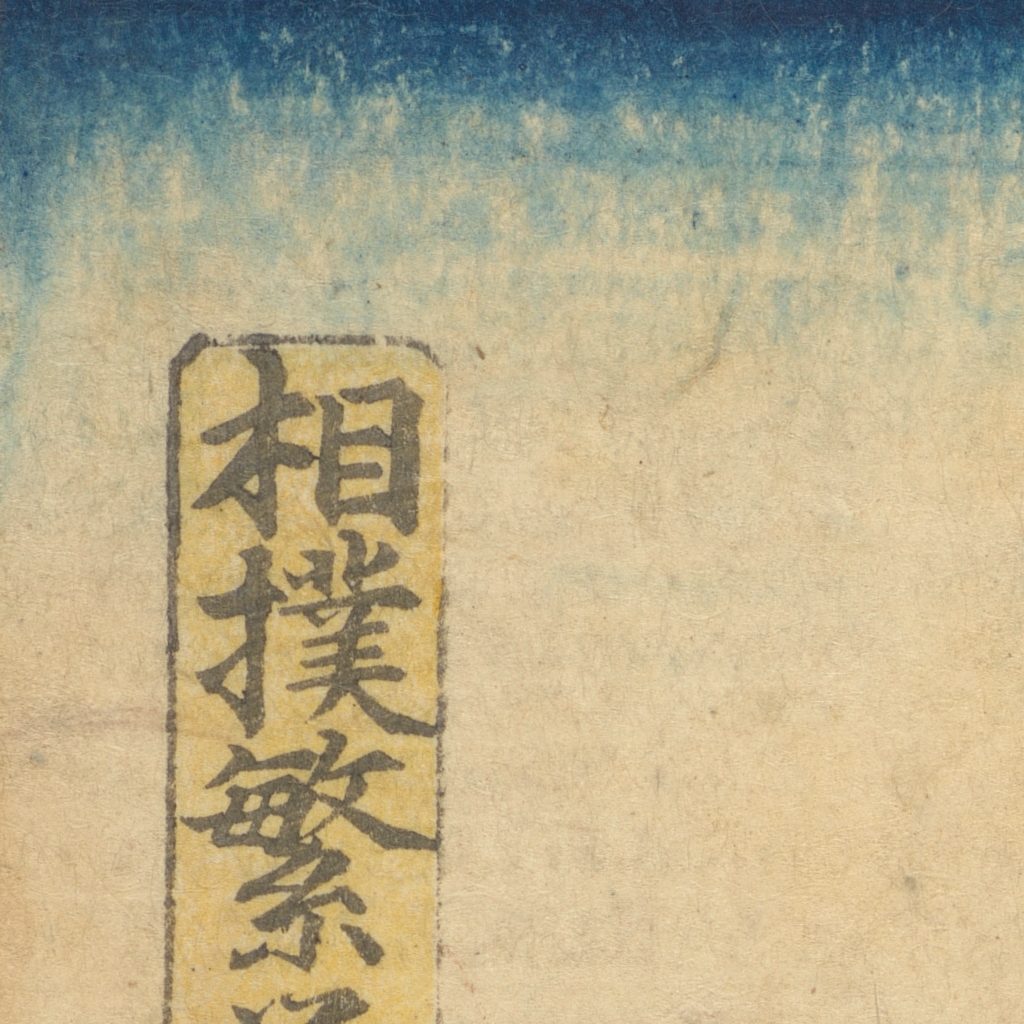 相撲繁